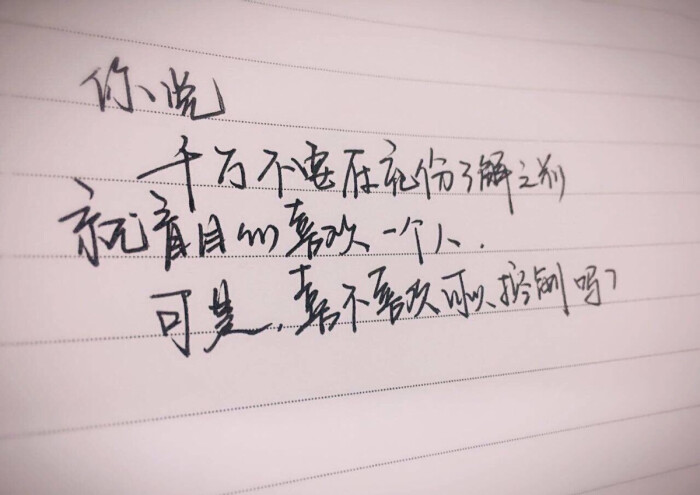 你说
千万不要在充份了解之前
就盲目的喜欢一个人.
可是,喜不喜欢可以控制吗?